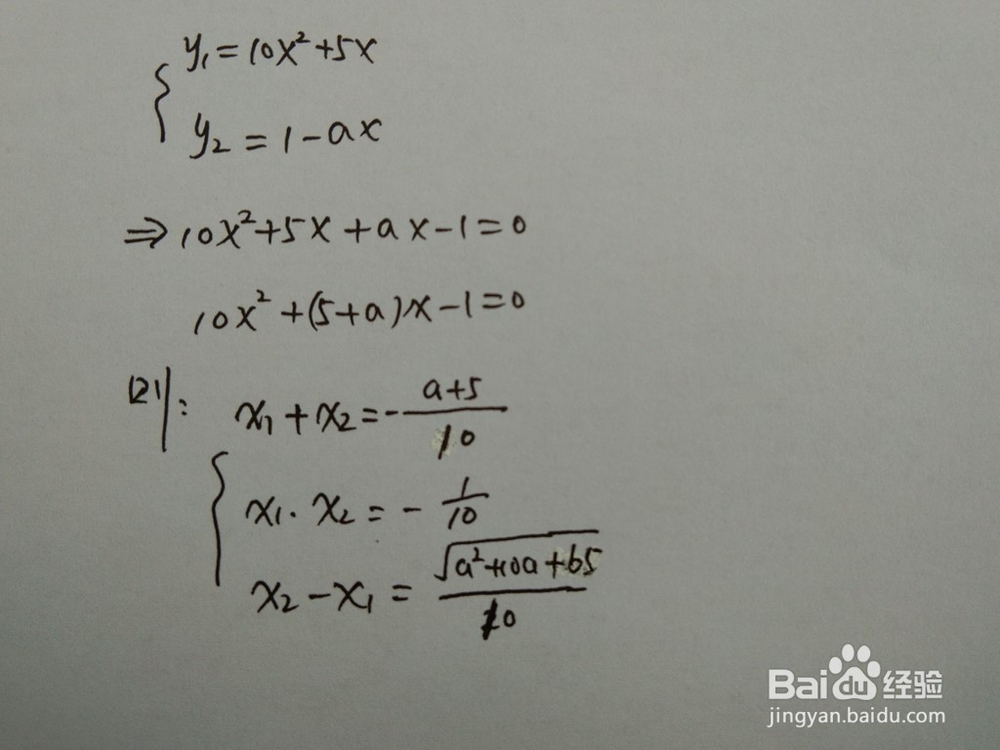 y₁=10x²+5x
y₂=1-ax
⇒10x²+5x+ax-1=0
10x²+(5+a)x-1=0
则:
x₁+x₂=-(a+5)/10
x₁·x₂=-1/10
x₂-x₁=√(a²+10a+65)/10
Baidu经验
jingyan.baidu.com